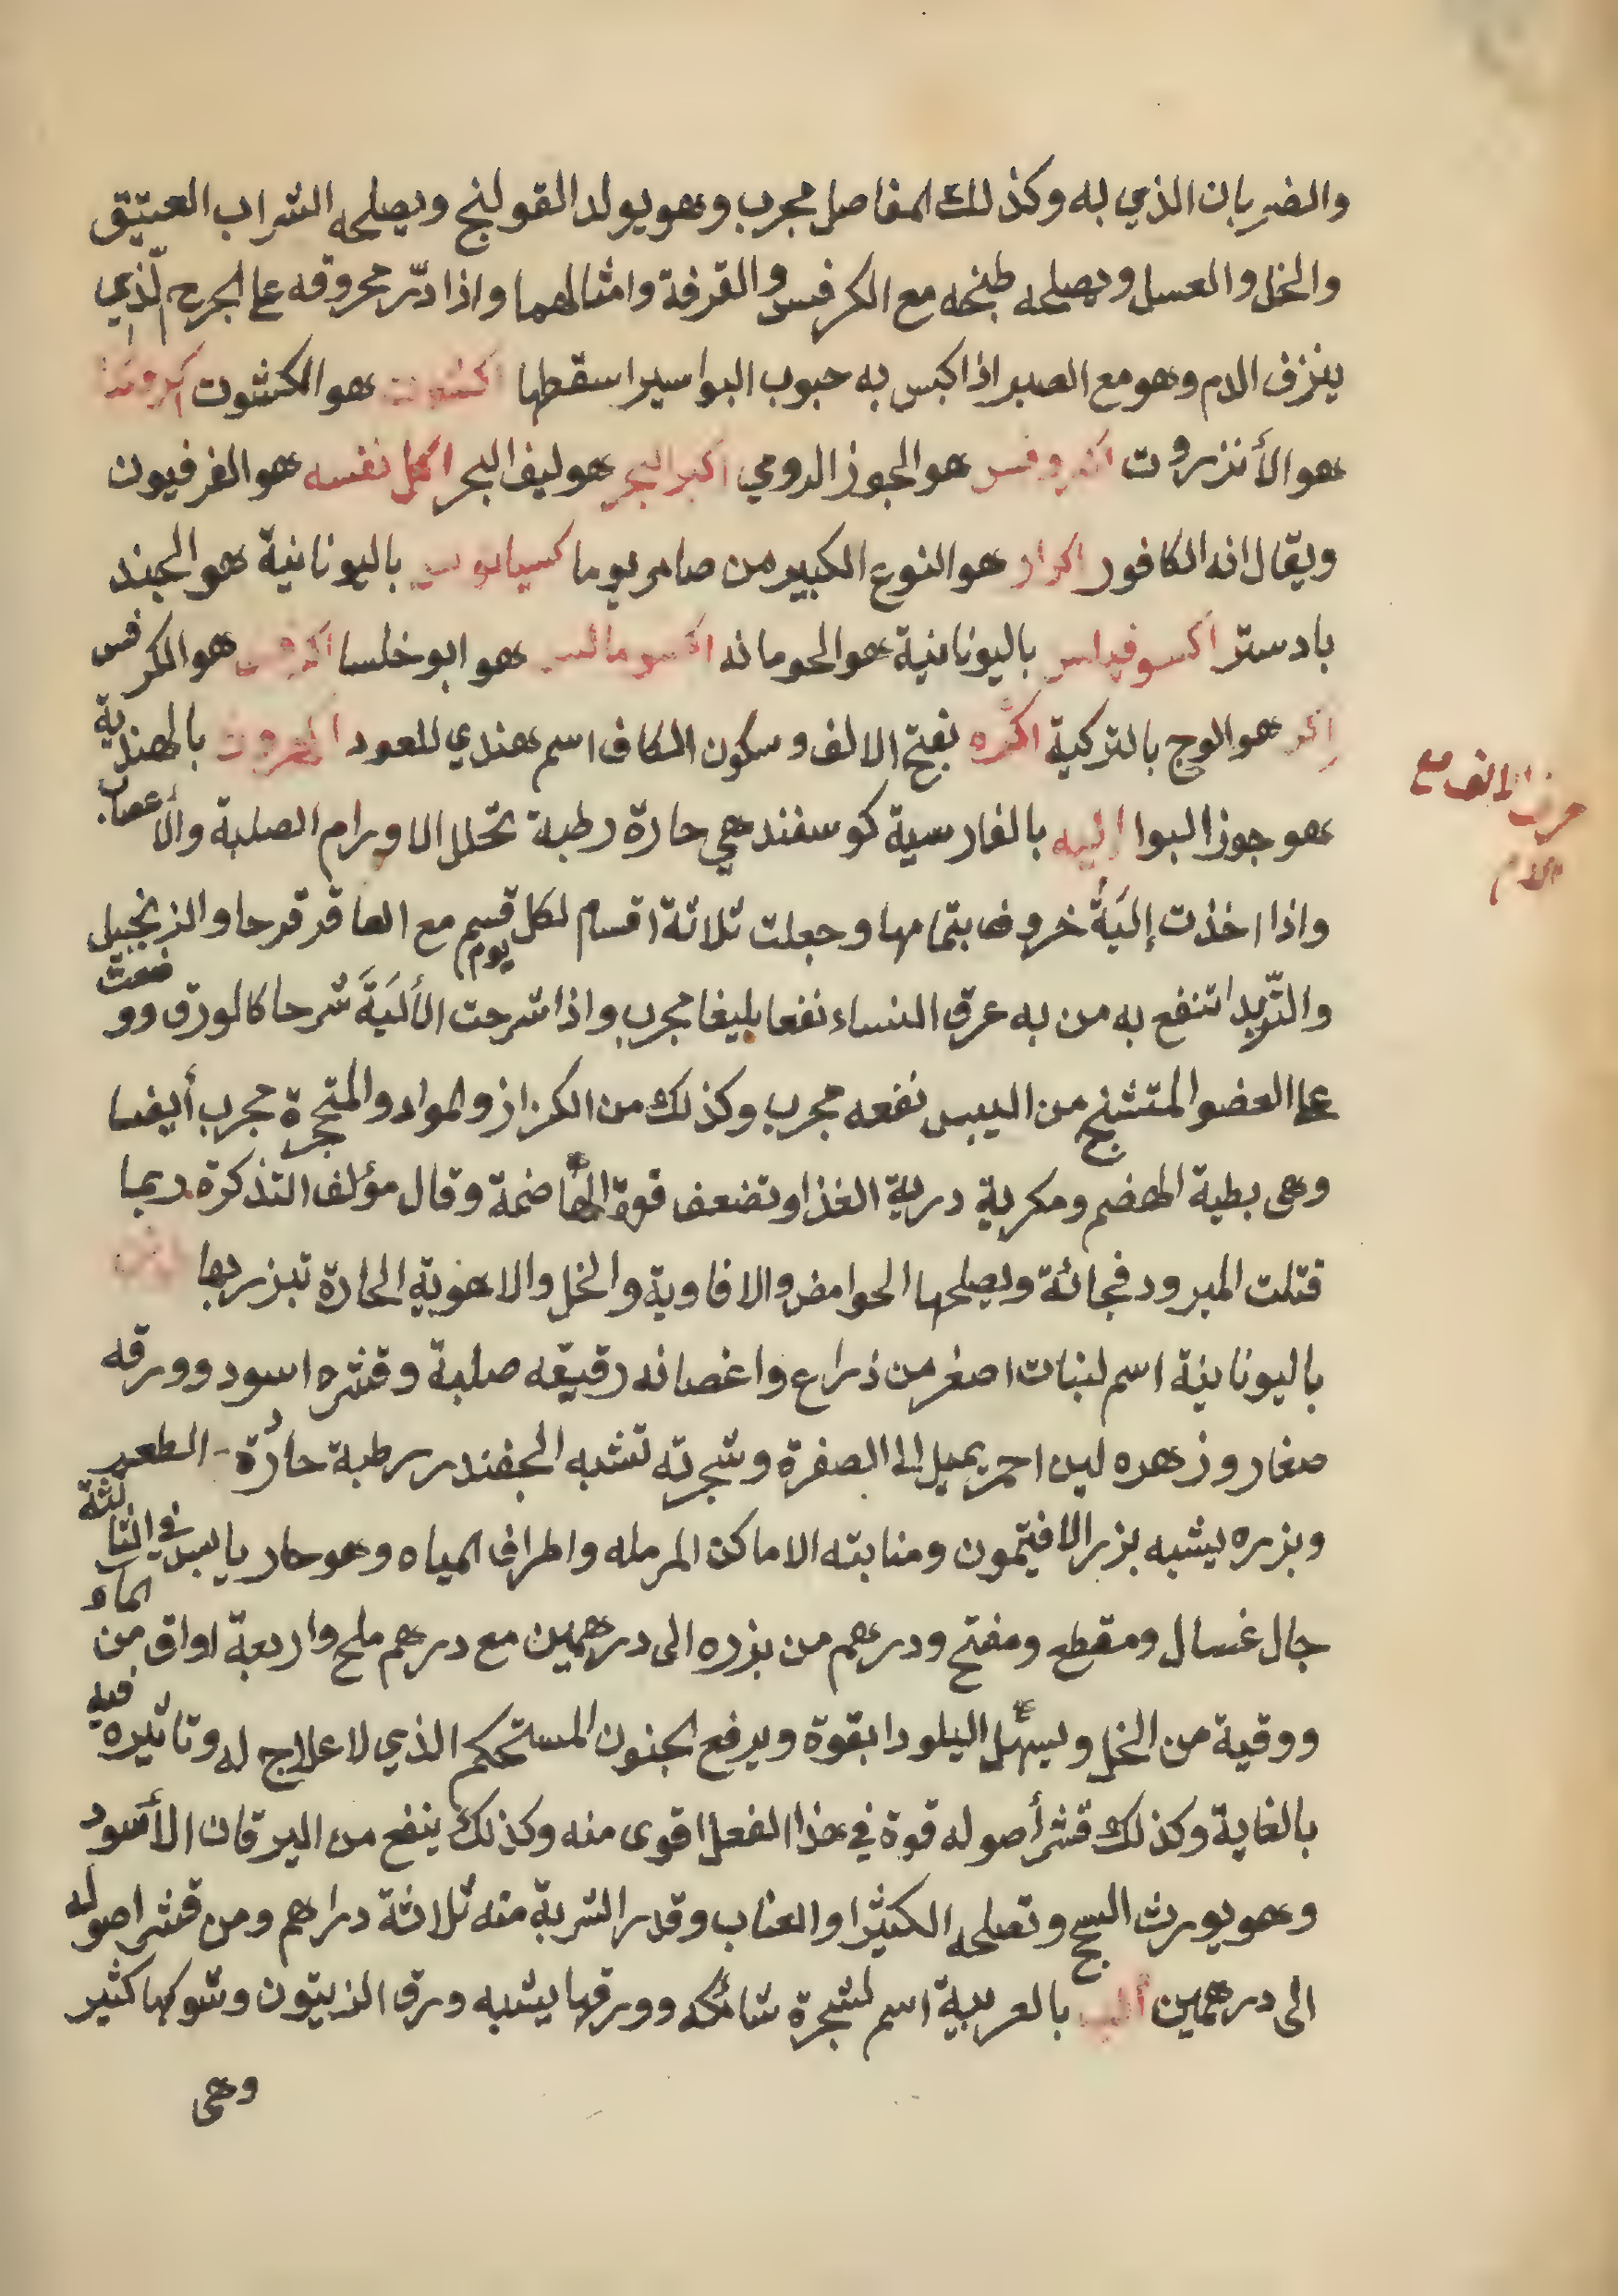 والضربان الذي به وكذلك المفاصل مجرب وهو يولد القولنج ويصلحه الشراب العتيق
والخل والعسل ويصلحه طبخه مع الكرفس والقرفة وامثالهما واذا ذر محروقه على الجرح الذي
ينزف الدم وهو مع الصبر اذا كبس به حبوب البواسير اسقطها اكشوت هو الكشوت
هو الأنزروت هو الجوز الرومي اكبر البحر هو ليف البحر اكل نفسه هو الفرفيون
ويقال انه الكافور اكرار هو النوع الكبير من صامريوما باليونانية هو الجند
بادستر اكسوفيداس باليونانية هو الحومانه اكسومالس هو ابو خلسا اكرفس هو الكرفس
اكر هو الوج بالتركية اكره بفتح الالف وسكون الكاف اسم هندي للعود بالهندية
حرف الالف مع
اللام
هو جوز البوا اليه بالفارسية كوسفند هي حارة رطبة تحلل الاورام الصلبة والأعصاب
واذا اخذت إليَةُ خروف بتمامها وجعلت ثلاثة اقسام لكل قسم يوم مع العاقر قرحا والزنجبيل
والتّربد انتفع به من به عرق النساء نفعا بليغا مجرب واذا شرحت الأليَةَ شرحا كالورق ووضعت
على العضو المتشنج من اليبس نفعه مجرب وكذلك من الكزاز والمواد والمتحجرة مجرب أيضا
وهي بطية الهضم ومكربة دريية الغذا وتضعف قوة الهاضمة وقال مؤلف التذكرة ربما
قتلت المبرود فجائة ويصلحها الحوامض والافاوية والخل والاهوية الحارة تبزر بها
باليونانية اسم لنبات اصغر من ذراع واغصانه رقيقه صلبة وقشره اسود وورقه
صغار وزهره لين احمر يميل الى الصفرة وشجرته تشبه الجغندر رطبة حادّة الطعم
وبزره يشبه بزر الافتيمون ومنابته الاماكن المرمله واطراف المياه وهو حار يابس في الثالثة
جال غسال ومقطع ومفتح ودرهم من بزره الى درهمين مع درهم ملح واربعة اواق من الماء
ووقية من الخل ويسهل اليلودا بقوة ويرفع الجنون المستحكم الذي لا علاج له وتاثيره فيه
بالغاية وكذلك قشر أصوله قوة في هذا الفعل اقوى منه وكذلك ينفع من اليرقان الأسود
وهو يورث السحج وتصلحه الكثيرا والعناب وقدر الشربة منه ثلاثة دراهم ومن قشر اصوله
الى درهمين ألب بالعربية اسم لشجرة شائكه وورقها يشبه ورق الزيتون وشوكها كثير
وهي